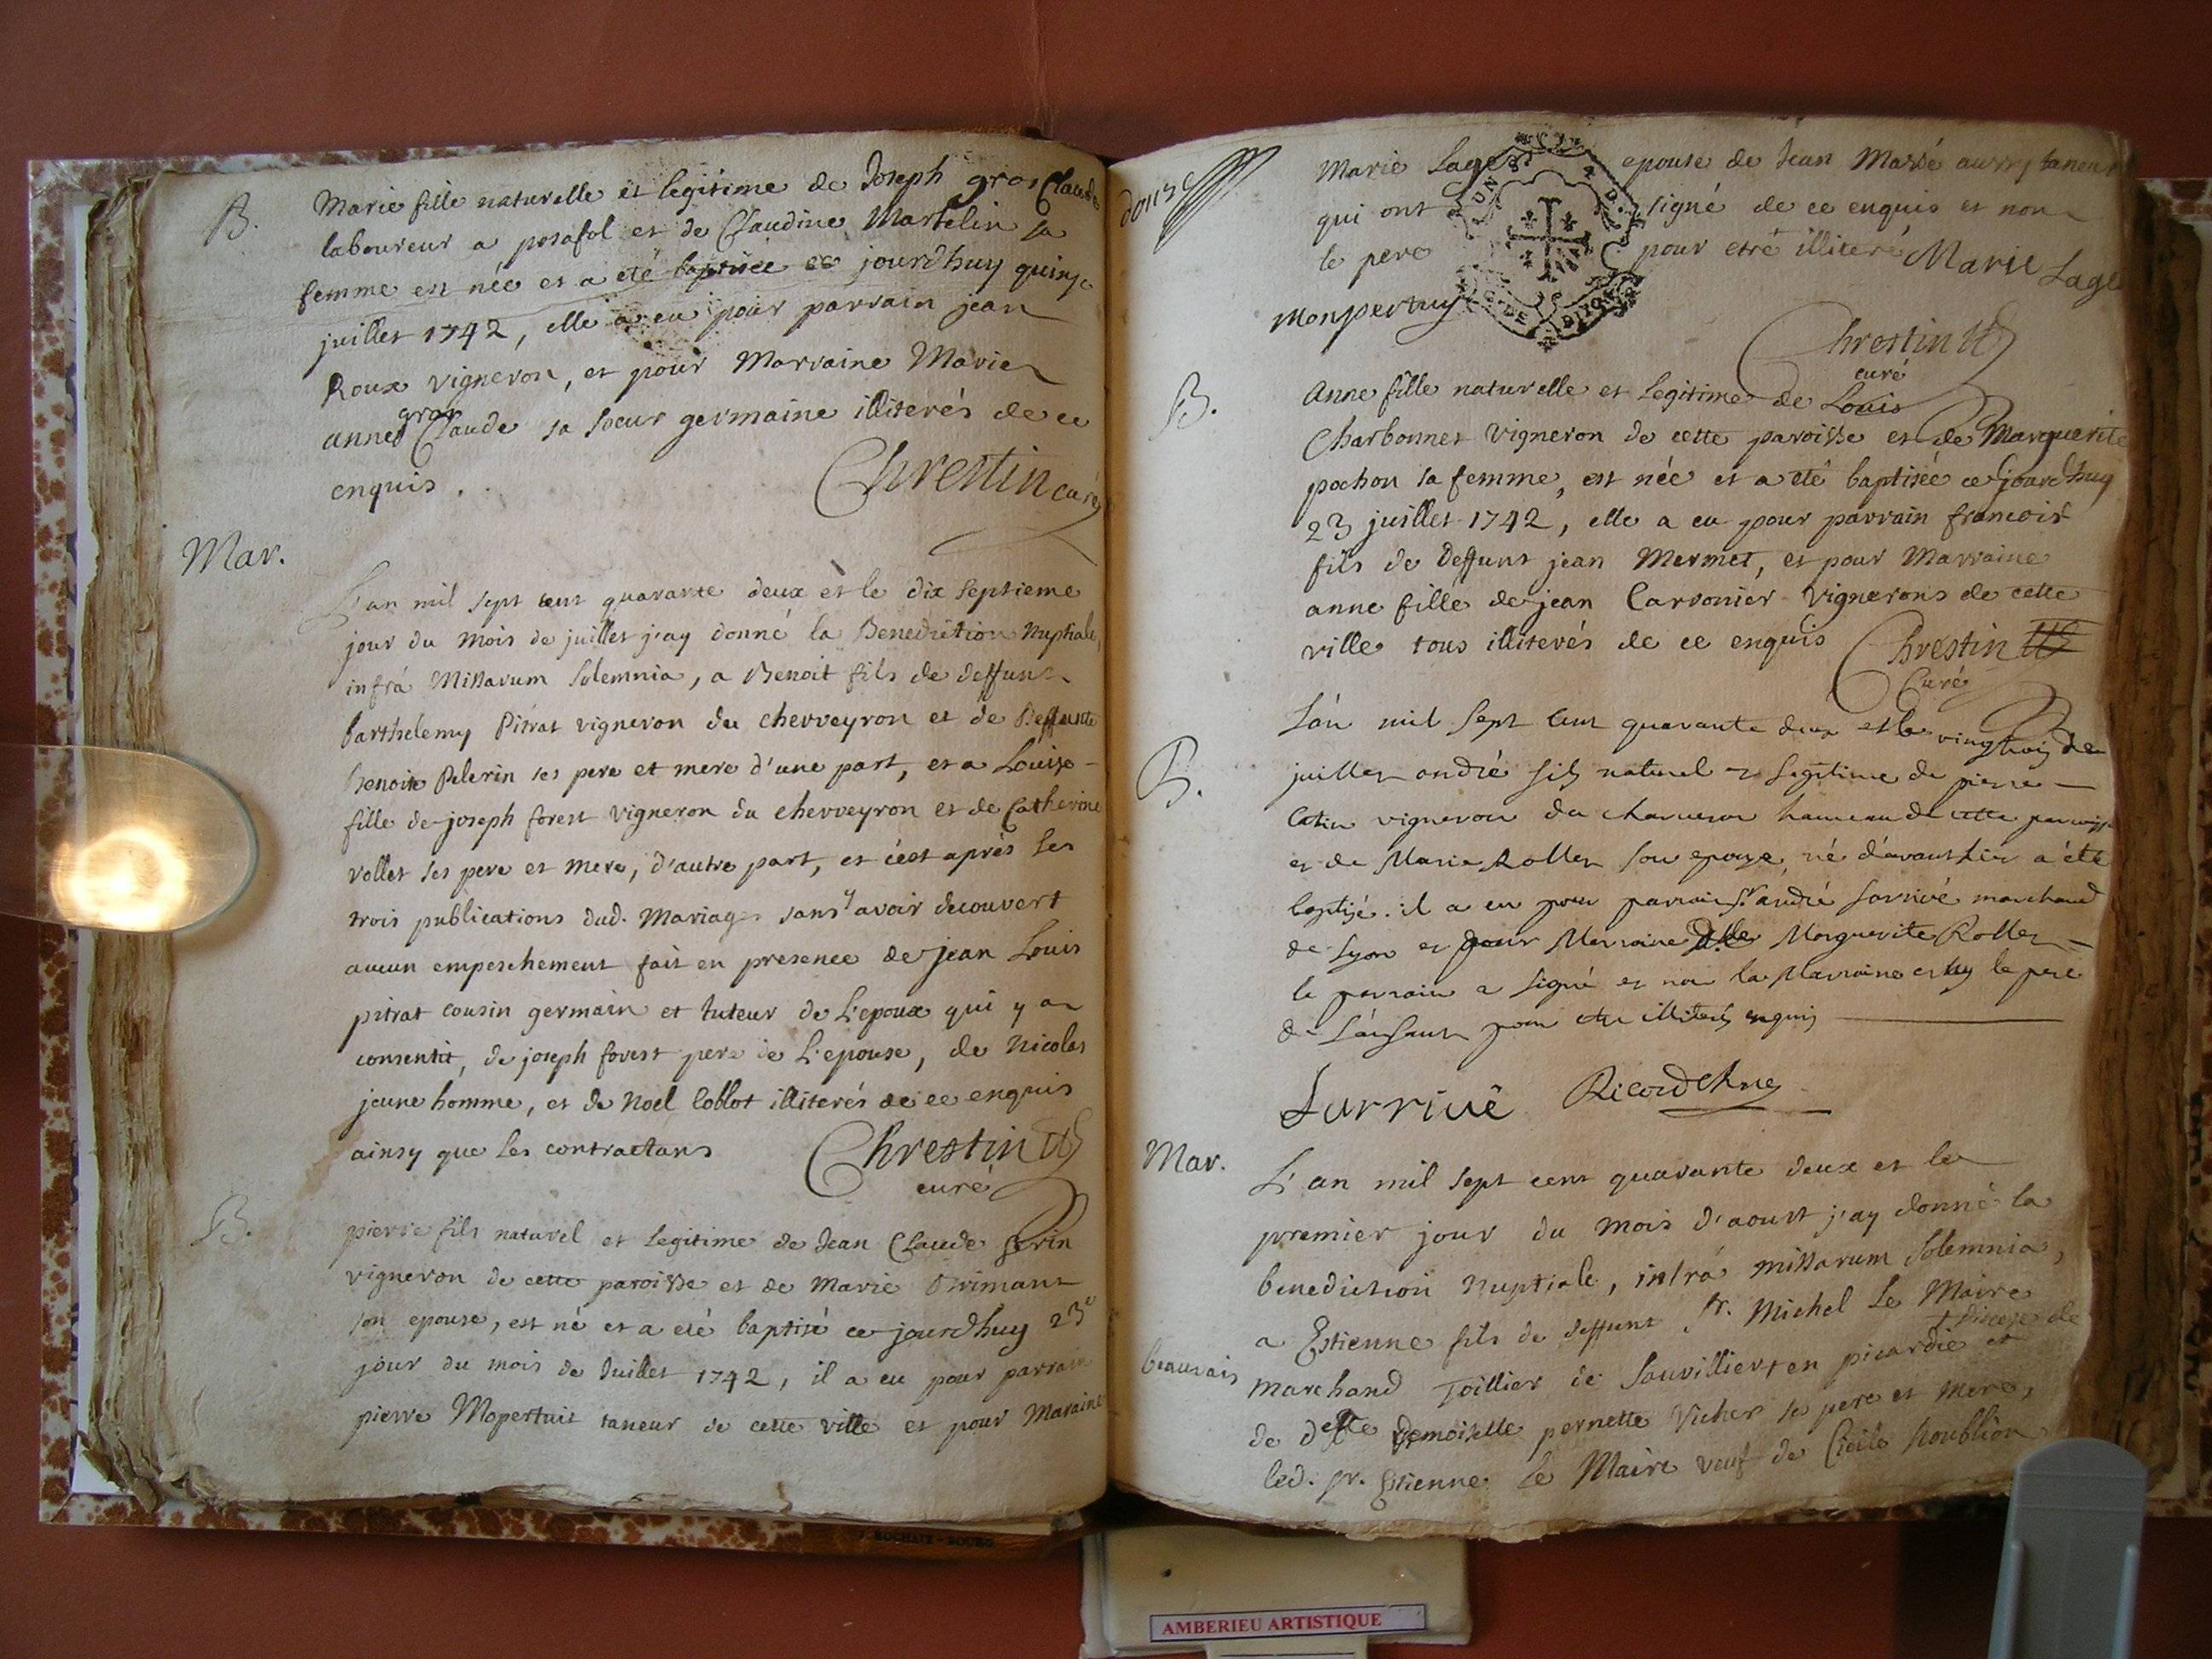 B.
Marie fille naturelle et legitime de Joseph gros Claude
laboureur a posafol et de Claudine Martelin sa
femme est née et a eté baptisée ce jourdhuy quinze
juillet 1742, elle a eu pour parrain jean
Roux vigneron, et pour Marraine Marie
anne gros Claude sa soeur germaine illiterés de ce
enquis.
Chrestin curé
Mar.
L'an mil sept cent quarante deux et le dix septieme
jour du mois de juillet j'ay donné la Benediction Nuptiale,
infrá Missarum solemnia, a Benoit fils de deffunt
barthelemy Pitrat vigneron du cherveyron et de deffunte
benoite Pelerin ses pere et mere d'une part, et a Louise
fille de joseph forest vigneron du cherveyron et de Catherine
vollet ses pere et mere, d'autre part, et c'est aprés les
trois publications dud. Mariage sans y avoir decouvert
aucun empeschement fait en presence de jean Louis
pitrat cousin germain et tuteur de L'epoux qui y a
consentit, de joseph forest pere de L'epouse, de Nicolas
jeune homme, et de Noel Collot illiterés de ce enquis
ainsy que les contractans
Chrestin
curé
B.
pierre fils naturel et legitime de Jean Claude
vigneron de cette paroisse et de Marie
son epouse, est né et a eté baptisé ce jourdhuy 23e
jour du mois de Juillet 1742, il a eu pour parrain
pierre Mopertuit taneur de cette ville et pour Maraine
douze
Marie Lage epouse de Jean Massé aussy taneur
qui ont signé de ce enquis et non
le pere pour etré illiteré Marie Lage
monpertuy
Chrestin
curé
B.
Anne fille naturelle et legitime de Louis
Charbonnet vigneron de cette paroisse et de Marguerite
pochon sa femme, est née et a eté baptisée ce jourdhuy
23 juillet 1742, elle a eu pour parrain francois
fils de deffunt jean Mermet, et pour Marraine
anne fille de jean Carronier vignerons de cette
ville tous illiterés de ce enquis
Chrestin
Curé
B.
L'an mil sept cent quarante deux et le vingtrois de
juillet andré fils naturel et legitime de pierre
vigneron du hameau de cette paroisse
et de Marie Rollet son epouse, né d'avanthier a été
baptisé. il a eu pour parrain Sr. andré Larrivé marchand
de Lyon et pour Marraine Dlle Marguerite Rollet
le parrain a signé et non la Marraine et ny le pere
de l'enfant pour etre illiterés enquis
Larrivé
Mar.
L'an mil sept cent quarante deux et le
premier jour du mois d'aoust j'ay donné la
benediction Nuptiale, intrá missarum solemnia,
a Estienne fils de deffunt Sr. Michel Le Maire
+ diocese de
beauvais
marchand Toillier de Sauvillier + en picardie et
de deffte Demoiselle pernette Vicher se pere et mere,
led. Sr. Estienne Le Maire veuf de Cicile houblion
F. ROCHAIX - BOURG
AMBERIEU ARTISTIQUE